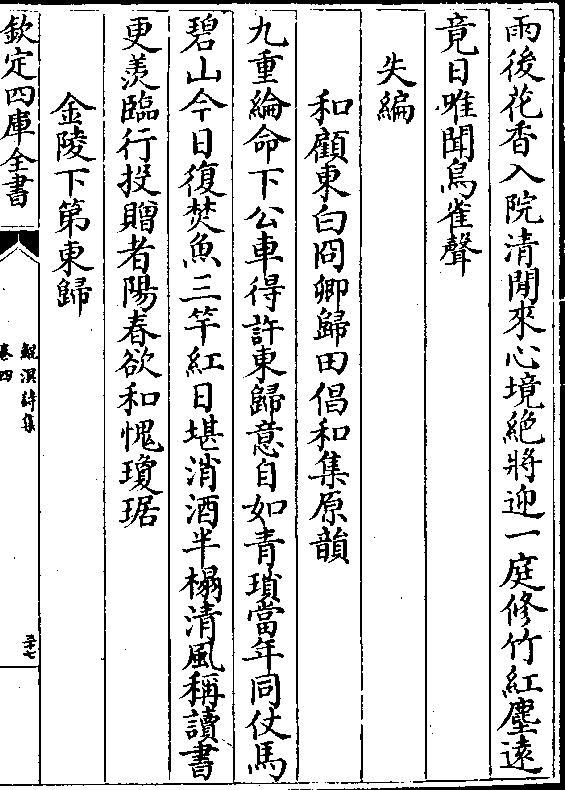 雨後花香入院清閒來心境絕將迎一庭修竹紅塵遠
竟日唯聞鳥雀聲
失編
和顧東白冏卿歸田倡和集原韻
九重綸命下公車得許東歸意自如青瑣當年同仗馬
碧山今日復焚魚三竿紅日堪消酒半榻清風稱讀書
更羨臨行投贈者陽春欲和愧瓊琚
金陵下第東歸
欽定四庫全書
鯤溟詩集
卷四
二十七